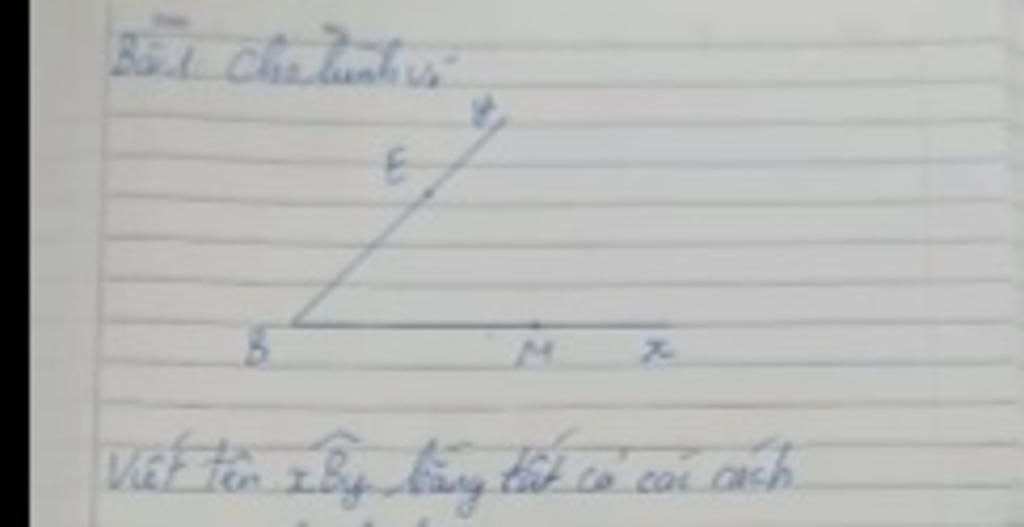 Bài 1 Cho hình vẽ
y
E
B M x
Viết tên xBy bằng tất cả các cách